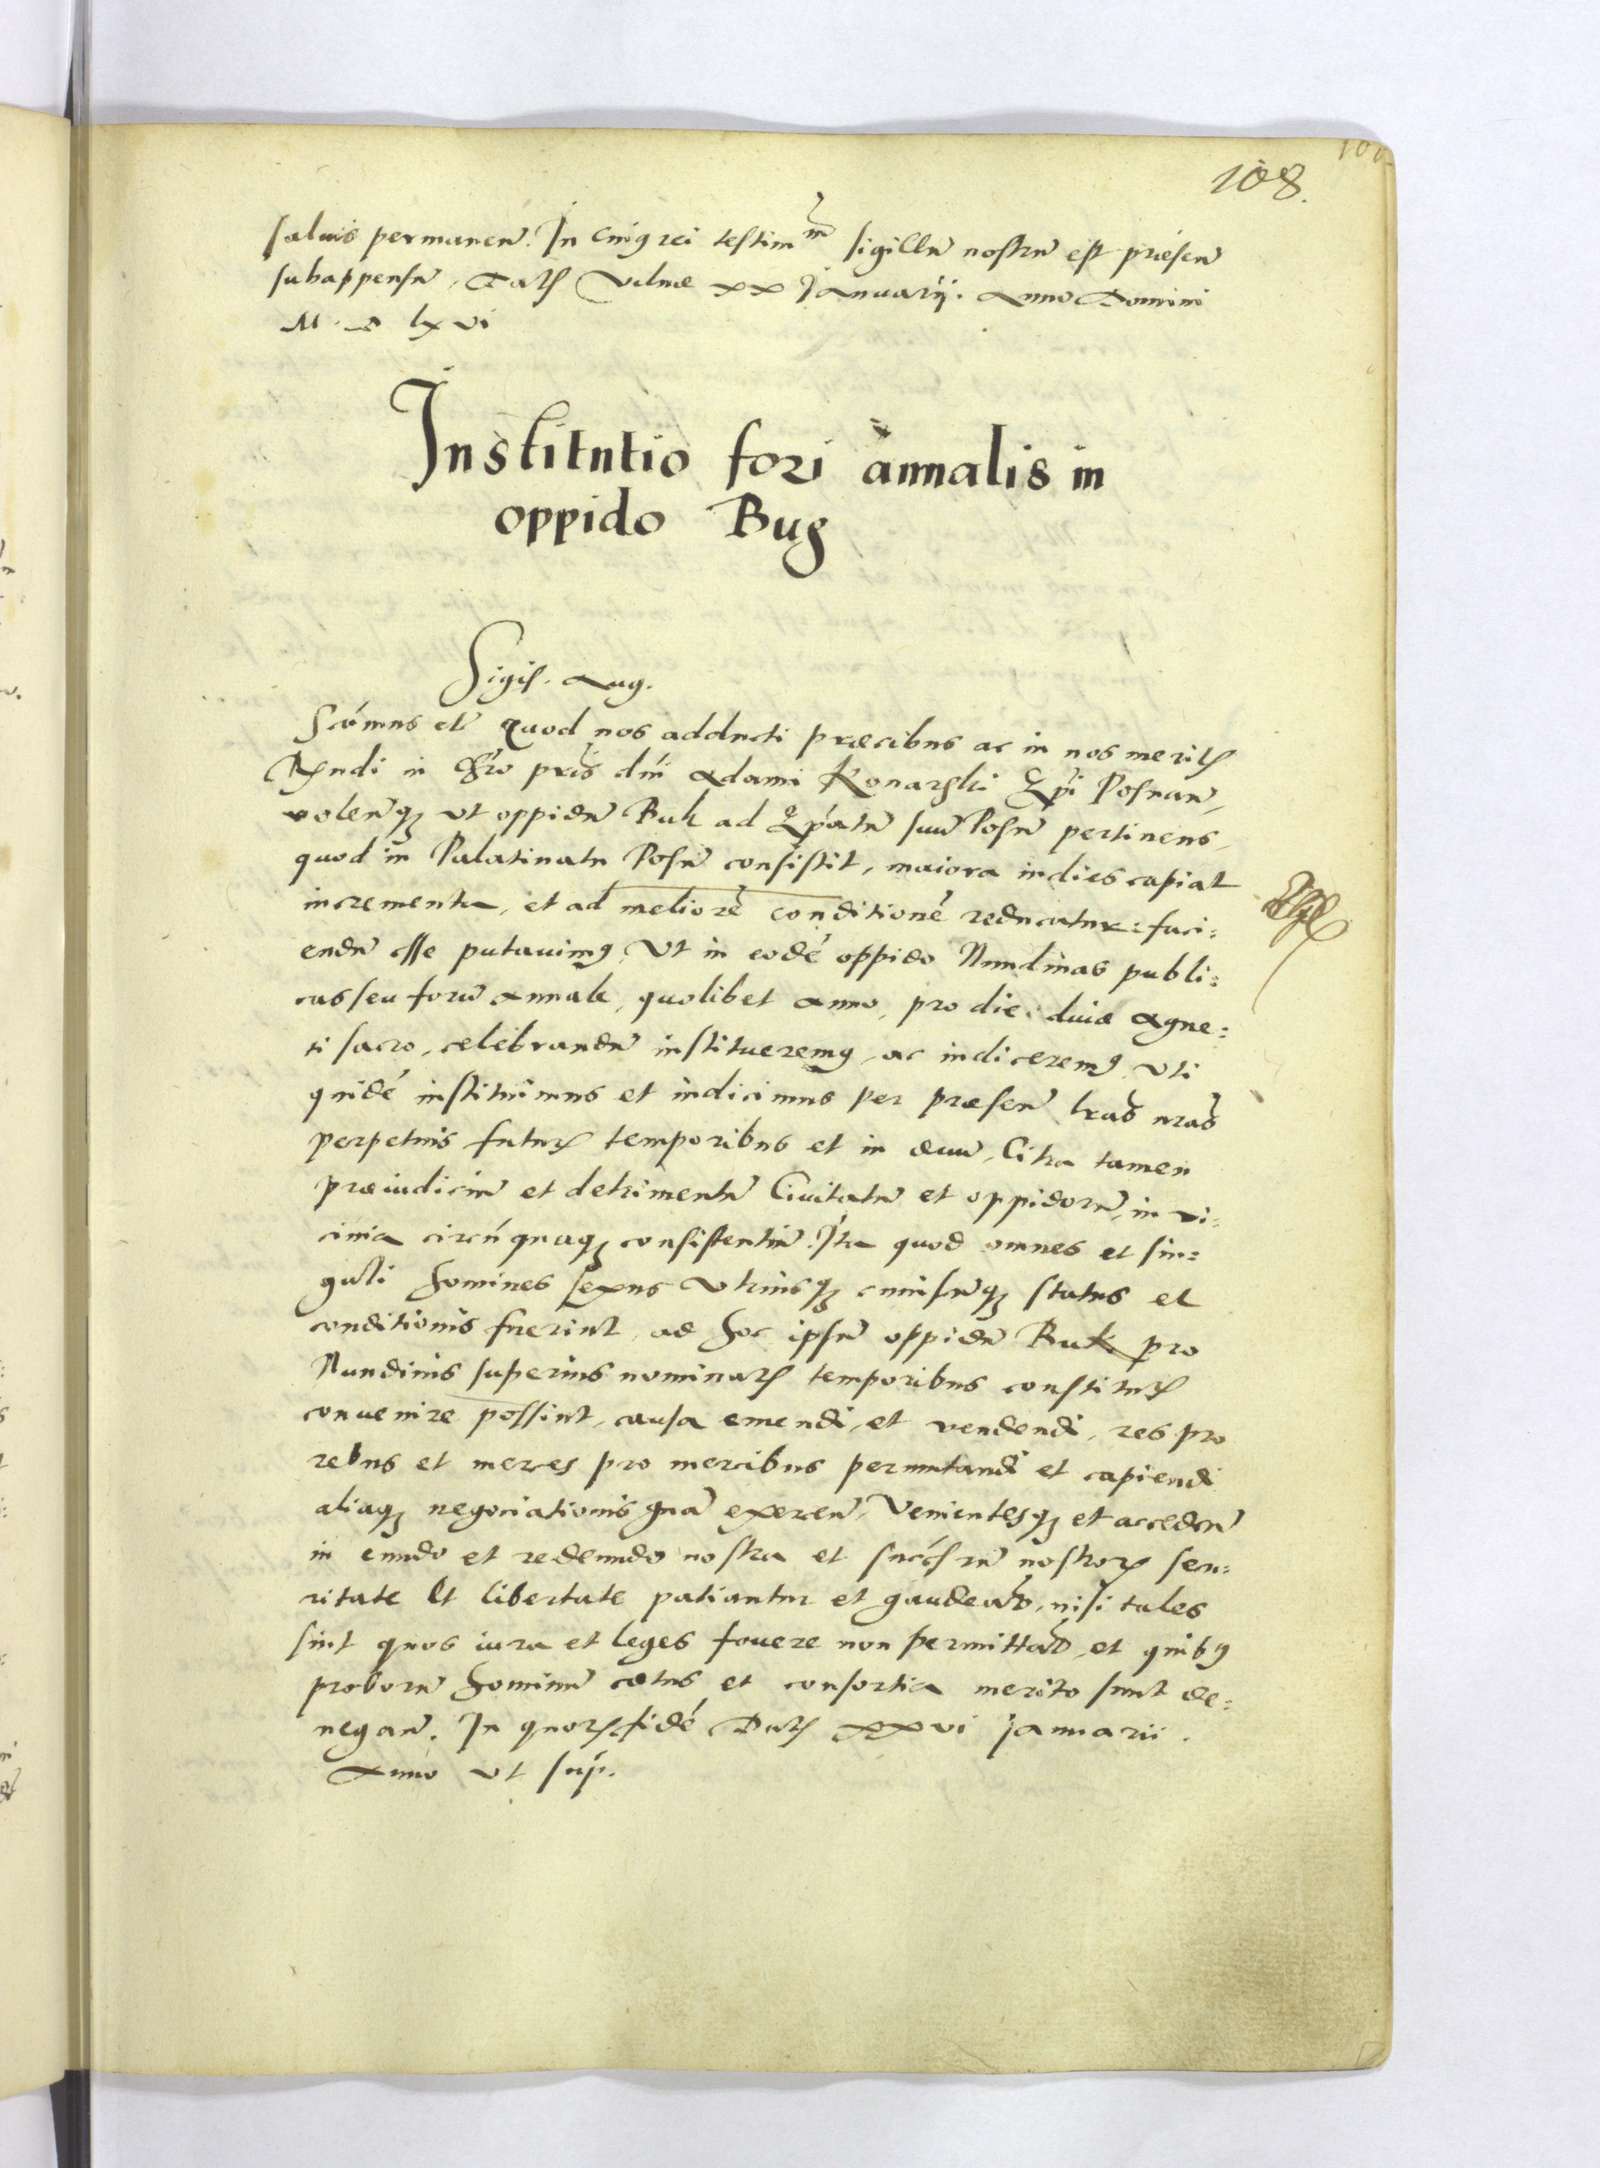 108.
saluis permanen̄. In cuiꝰ rei testim̄ sigillū nostrū est præsen̄
subappensū, Datꝭ Vilnæ xx Januarij. Anno Domini
M D lxvi
Institutio fori annalis in
oppido Bug
Sigis. Aug.
Scimus etc̄ Quod nos adducti præcibus ac in nos meritꝭ
Rx̄ndi in Chr̄o pr̄is dn̄i Adami Konarski Ep̄i Posnan̄,
volen̄qꝫ vt oppidū Buk ad Ep̄atū suū Posn̄ pertinens,
quod in Palatinatu Posn̄ consistit, maiora indies capiat
incrementa, et ad meliorē conditionē reducatur: faci:
endū esse putauimꝰ, Vt in eodē oppido Nundinas publi:
cas seu forū annale, quolibet anno, pro die diuæ Agne:
ti sacro, celebrandū institueremꝰ, ac indiceremꝰ, vti
quidē instituimus et indicimus per præsen̄ lr̄as nr̄as
perpetuis futurꝭ temporibus et in æuū, Citra tamen
præiudiciū et detrimentū Ciuitatū et oppidorū, in vi:
cinia circūquaqꝫ consistentiū. Ita quod omnes et sin:
guli homines sexus vtriusqꝫ cuiuscūqꝫ status et
conditionis fuerint, ad hoc ipsū oppidū Buk pro
Nundinis superius nominatꝭ temporibus constitutꝭ
conuenire possint, causa emendi, et vendendi, res pro
rebus et merces pro mercibus permutandi et capiendi
aliaqꝫ negociationis gn̄a exercen̄, Venientesqꝫ et acceden̄
in eundo et redeundo nostra et succ̄sorū nostrorꝝ secu:
ritate et libertate patiantur et gaudeāt, nisi tales
sint quos iura et leges fouere non permittāt, et quibꝰ
proborū hominū cætus et consortia merito sunt de:
negan̄. In quorꝝ fidē Datꝭ xxvi januarii.
Anno vt sup̄.